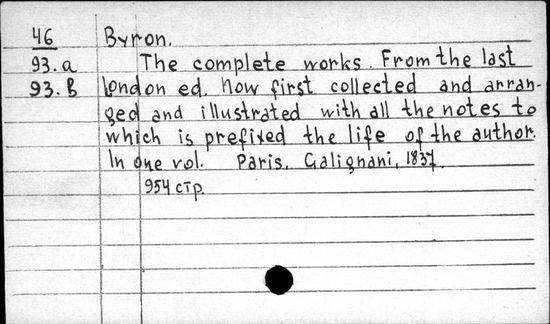 46 Byron.
93.a The complete works. From the last
93.B London ed. Now first collected and arran-
ged and illustrated with all the notes to
which is prefixed the life of the author.
In one vol. Paris, Galignani, 1837.
954 стр.